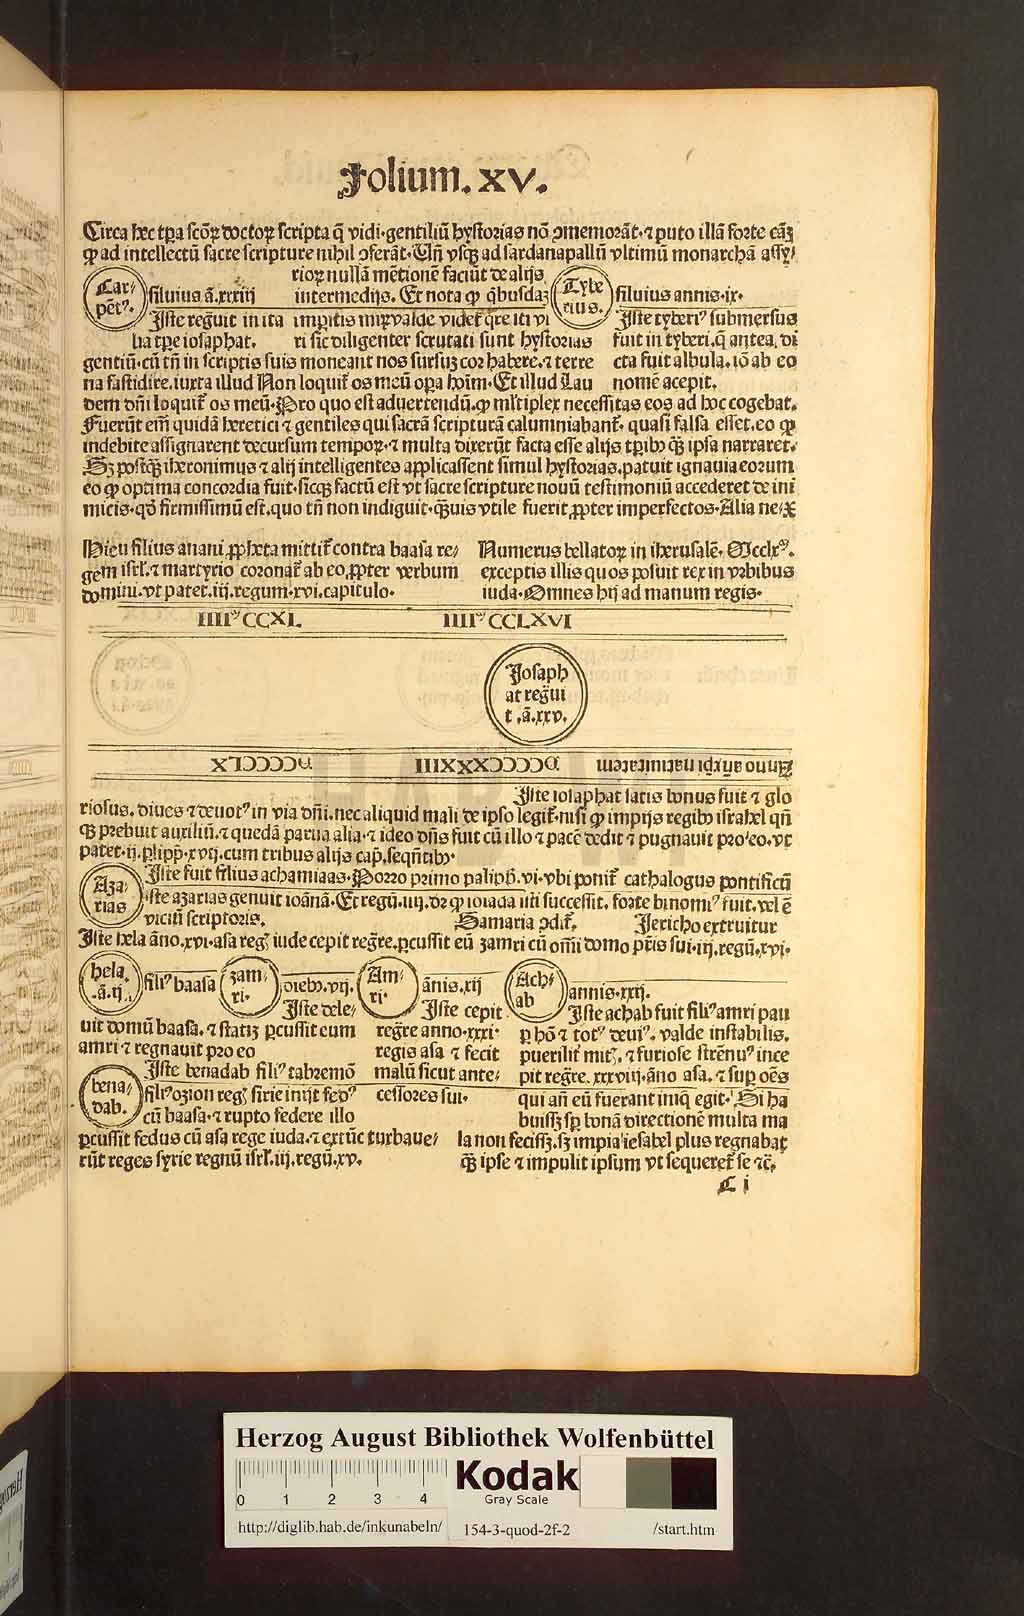 Folium. XV.
Circa hec tꝑa scōꝝ doctoꝝ scripta q̄ vidi·gentiliū hystorias nō ↄmemorāt·⁊ puto illā forte cāꝫ
ꝙ ad intellectū sacre scripture nihil ↄferāt·Uñ vsqꝫ ad sardanapallū vltimū monarchā assy/
rioꝝ nullā mētionē faciūt de alijs
intermedijs. Et nota ꝙ q̇busdaꝫ
Car-
pētꝰ.
siluius ā.xxxiij
Tybe
rius.
siluius annis·ix·
Iste regͣuit in ita
lia tꝑe iosaphat.
impitis mirꝭvalde videt̄ q̄re iti vi
ri sic diligenter scrutati sunt hystorias
Iste tyberiꝰ submersus
fuit in tyberi.q̄ antea. di
cta fuit albula. iō ab eo
nomē acepit.
gentiū·cū tñ in scriptis suis moneant nos sursuꝫ cor habere·⁊ terre
na fastidire.iuxta illud Non loquit̄ os meū oꝑa hoīm·Et illud Lau
dem dñi loquit̄ os meū·Pro quo est aduertendū.ꝙ mlťiplex necessitas eos ad hoc cogebat.
Fuerūt em̄ quidā heretici ⁊ gentiles qui sacrā scripturā calumniabant̄. quasi falsa esset.eo ꝙ
indebite assignarent decursum tempoꝝ·⁊ multa dixerūt facta esse alijs tꝑibꝰ qꝫ̄ ipsa narraret.
Sꝫ postqꝫ̄ iheronimus ⁊ alij intelligentes applicassent simul hystorias.patuit ignauia eorum
eo ꝙ optima concordia fuit·sicqꝫ factū est vt sacre scripture nouū testimoniū accederet de ini
micis·qd̄ firmissimū est.quo tñ non indiguit·qꝫ̄uis vtile fuerit ꝓpter imperfectos·Alia ne·X
Hieu filius anani ꝓpheta mittit̄ contra baasa re/
gem isrl̄.⁊ martyrio coronat̄ ab eo.ꝓpter verbum
domini.vt patet.iij.regum.xvi.capitulo.
Numerus bellatoꝝ in iherusalē. Mcclxͫ.
exceptis illis quos posuit rex in vrbibus
iuda·Omnes hij ad manum regis·
IIIIͫCCXL
IIIIͫCCLXVI
Iosaph
at regͣui
t .ā.xxv.
Anno añ xp̄i natiuitatem
DCCCCXXXIII
DCCCCLX
Iste iosaphat satis bonus fuit ⁊ glo
riosus.diues ⁊ deuotꝰ in via dñi.nec aliquid mali de ipso legit̄.nisi ꝙ impijs regibꝰ israhel qñ
qꝫ prebuit auxiliū.⁊ quedā parua alia·⁊ ideo dñs fuit cū illo ⁊ pacē dedit ⁊ pugnauit pro eo.vt
patet.ij.ꝑlipp̄·xvij.cum tribus alijs cap̄.seqñtibꝰ·
Aza-
rias
Iste fuit filius achamiaas·Porro primo palipꝑ.vi·vbi ponit̄ cathalogus pontificū
iste azarias genuit ioānā·Et regū.iiij.dr̄ ꝙ ioiada isti successit. forte binomiꝰ fuit.vel ē
viciū scriptoris.
Samaria ↄdit̄.
Jericho extruitur
Iste hela āno.xvi·asa regꝭ iude cepit regͣre.ꝑcussit eū zamri cū om̄i domo pr̄is sui·iij.regū.xvi.
hela.
.ā.ij.
filiꝰ baasa
zam-
ri.
diebꝰ.vij.
Am-
ri·
ānis.xij
Ach-
ab
annis·xxij.
Iste dele-
uit domū baasa.⁊ statiꝫ ꝑcussit eum
amri ⁊ regnauit pro eo
Iste cepit
regͣre anno·xxxi·
regis asa ⁊ fecit
malū sicut ante-
cessores sui.
Iste achab fuit filiꝰ amri pau
ꝑ hō ⁊ totꝰ deuiꝰ. valde instabilis.
puerilit̄ mitꝭ.⁊ furiose strēnuꝰ ince
pit regͣre.xxxviij·āno asa.⁊ suꝑ oēs
qui añ eū fuerant iniq̄ egit·Si ha
buissꝫ sꝑ bonā directionē multa ma
la non fecissꝫ.sꝫ impia iesabel plus regnabat
qꝫ̄ ipse ⁊ impulit ipsum vt sequeret̄ se ⁊c̄.
bena-
dab.
Iste benadab filiꝰ tabremō
filiꝰ ozion regꝭ sirie iniit fedꝰ
cū baasa·⁊ rupto federe illo
ꝑcussit fedus cū asa rege iuda·⁊ extūc turbaue/
rūt reges syrie regnū isrl̄.iij.regū.xv.
C i
HAB WF
Herzog August Bibliothek Wolfenbüttel
0 1 2 3 4
Kodak
Gray Scale
http://diglib.hab.de/inkunabeln/ 154-3-quod-2f-2 /start.htm